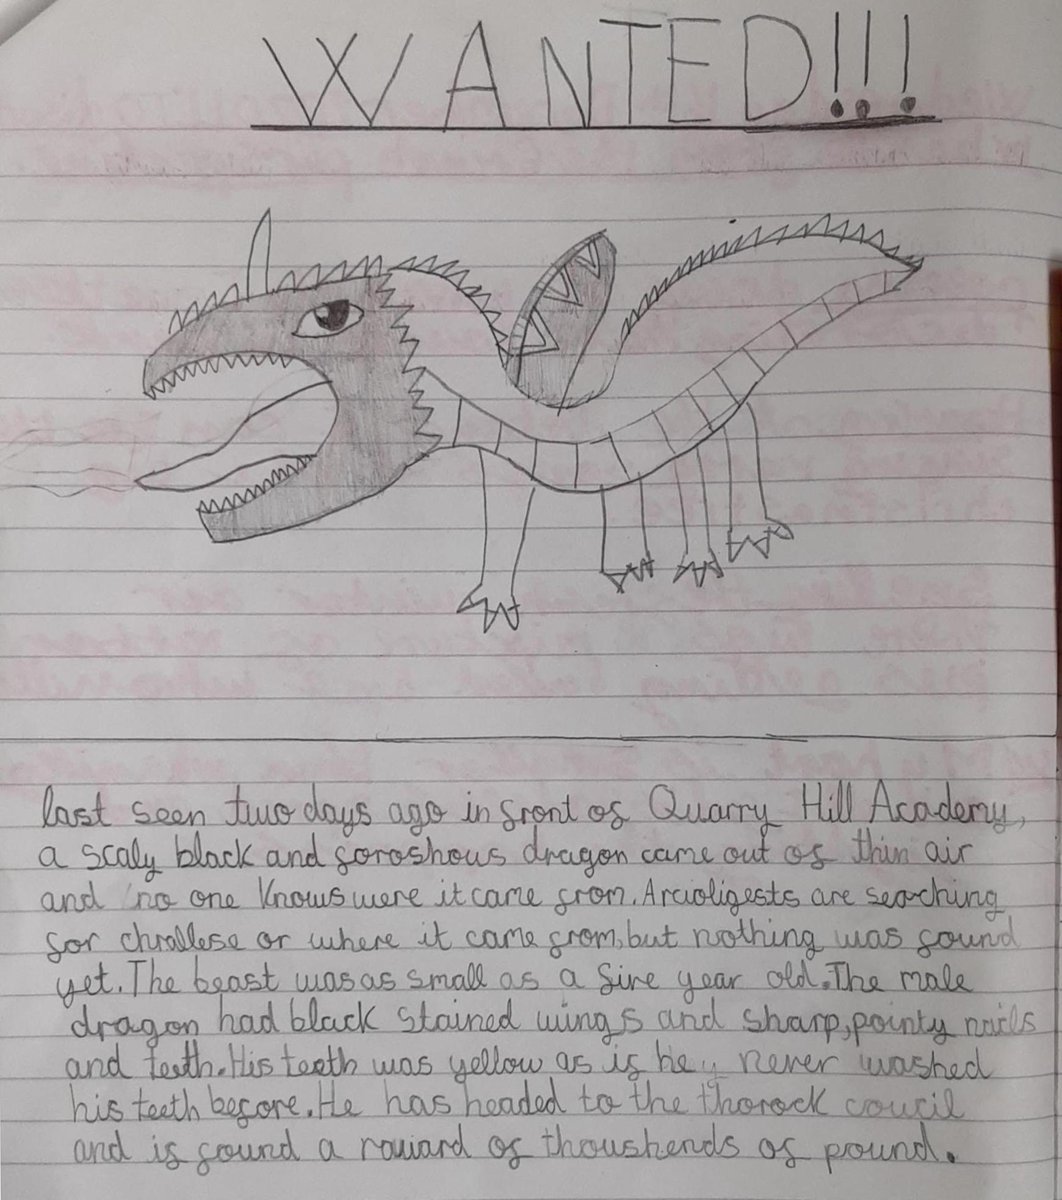 WANTED!!!
last seen two days ago in front of Quarry Hill Academy,
a scaly black and foroshous dragon came out of thin air
and no one knows were it came from. Arcioligests are searching
for chrallese or where it came from, but nothing was found
yet. The beast was as small as a five year old. The male
dragon had black stained wings and sharp, pointy nails
and teeth. His teeth was yellow as if he never washed
his teeth before. He has headed to the thorock coucil
and if found a raward of thoushends of pound.